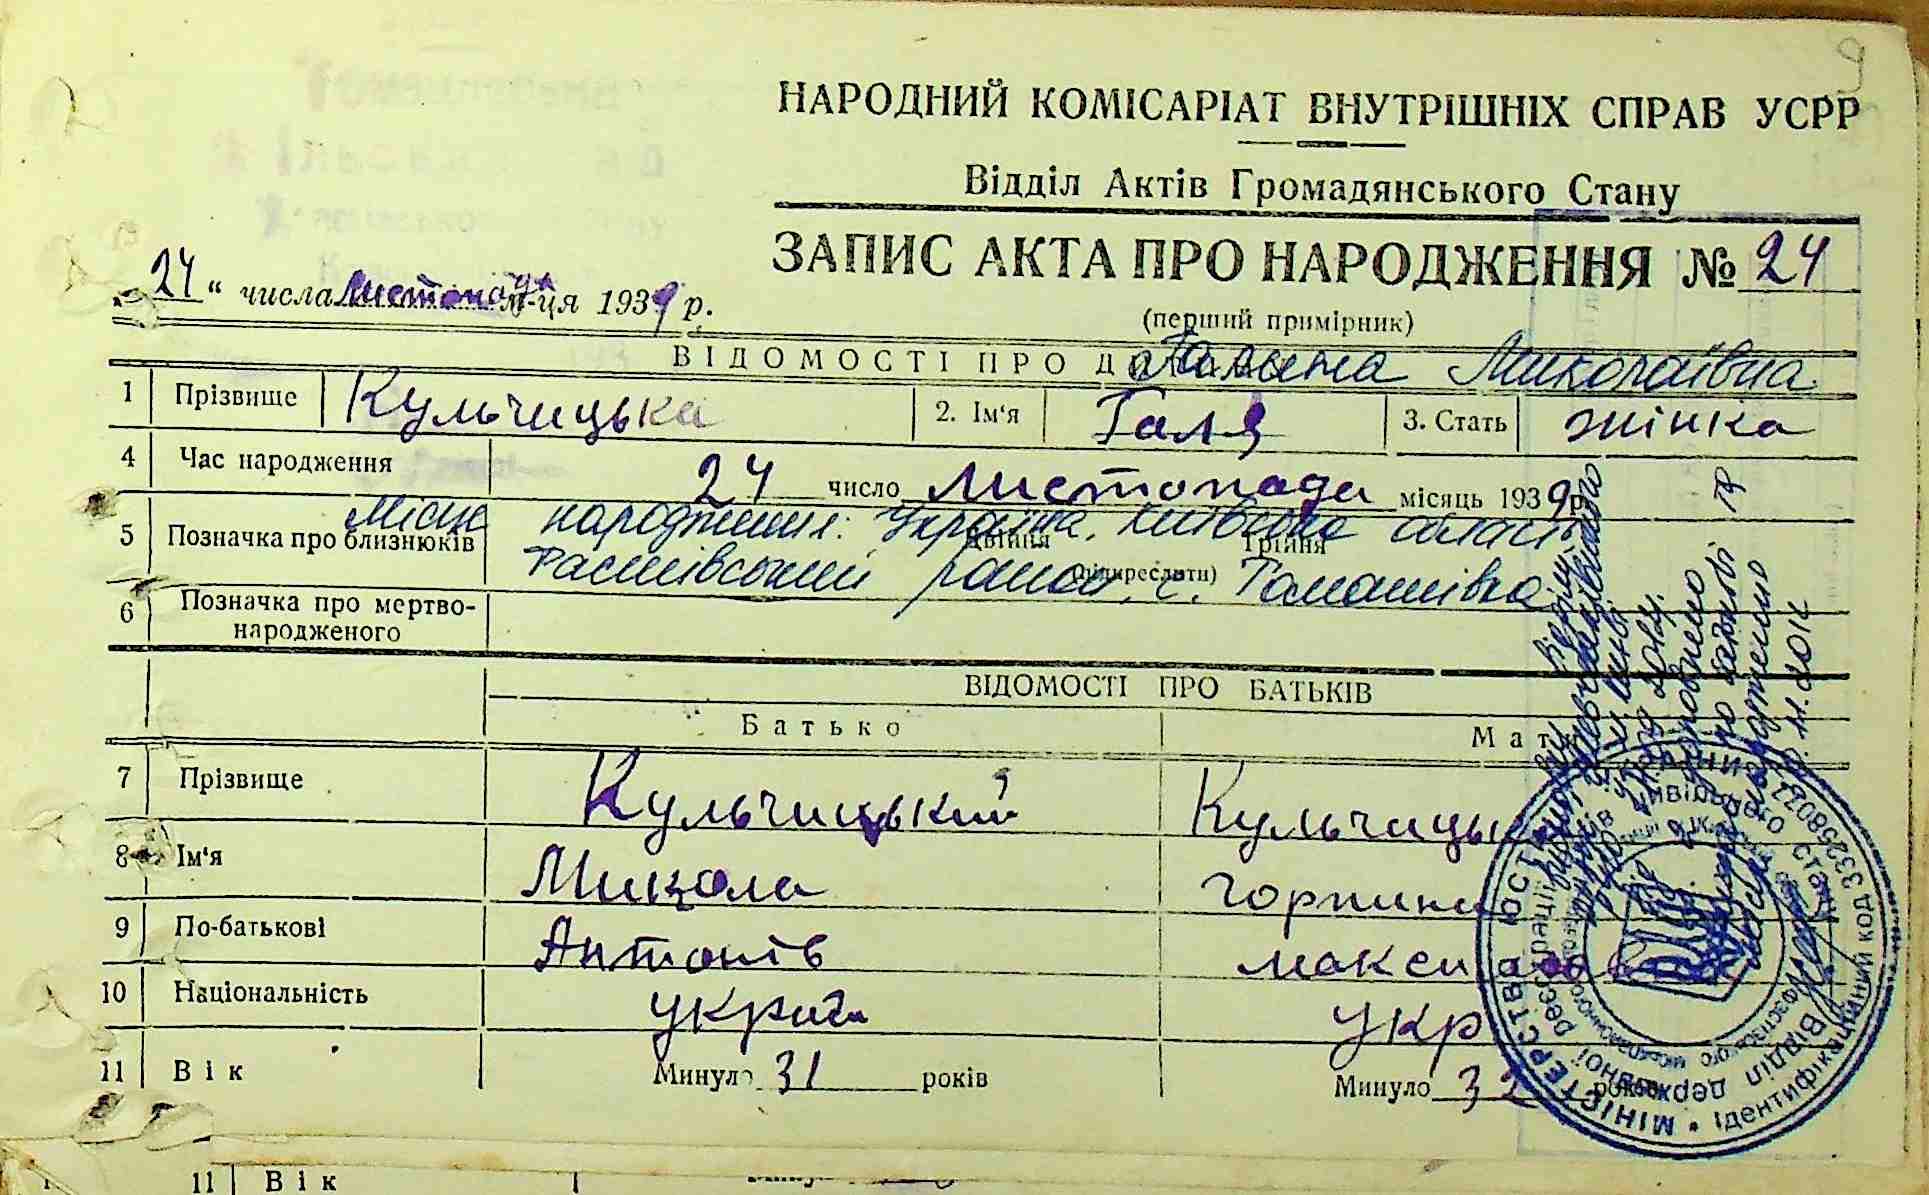 НАРОДНИЙ КОМІСАРІАТ ВНУТРІШНІХ СПРАВ УСРР
Відділ Актів Громадянського Стану
ЗАПИС АКТА ПРО НАРОДЖЕННЯ № 24
„ 24 “ числа листопада м-ця 1939 р.
(перший примірник)
ВІДОМОСТІ ПРО Д
Галина Миколаївна
1 Прізвище Кульчицька 2. Ім‘я Галя 3. Стать жінка
4 Час народження 24 число листопада місяць 1939 р.
місце народження: Україна, Київська область
5 Позначка про близнюків Двійня Трійня
(підкреслити)
Фастівський район, с. Томашівка
6 Позначка про мертво-
народженого
ВІДОМОСТІ ПРО БАТЬКІВ
Батько Мат
7 Прізвище Кульчицький Кульчицьк
8 Ім‘я Микола Горпина
9 По-батькові Антонів Макси
10 Національність украін укр
11 Вік Минуло 31 років Минуло 32 років
МІНІСТЕРСТВО ЮСТИЦІЇ УКРАЇНИ
Відділ державної реєстрації цивільного стану
Ідентифікаційний код 33258027
11 Вік